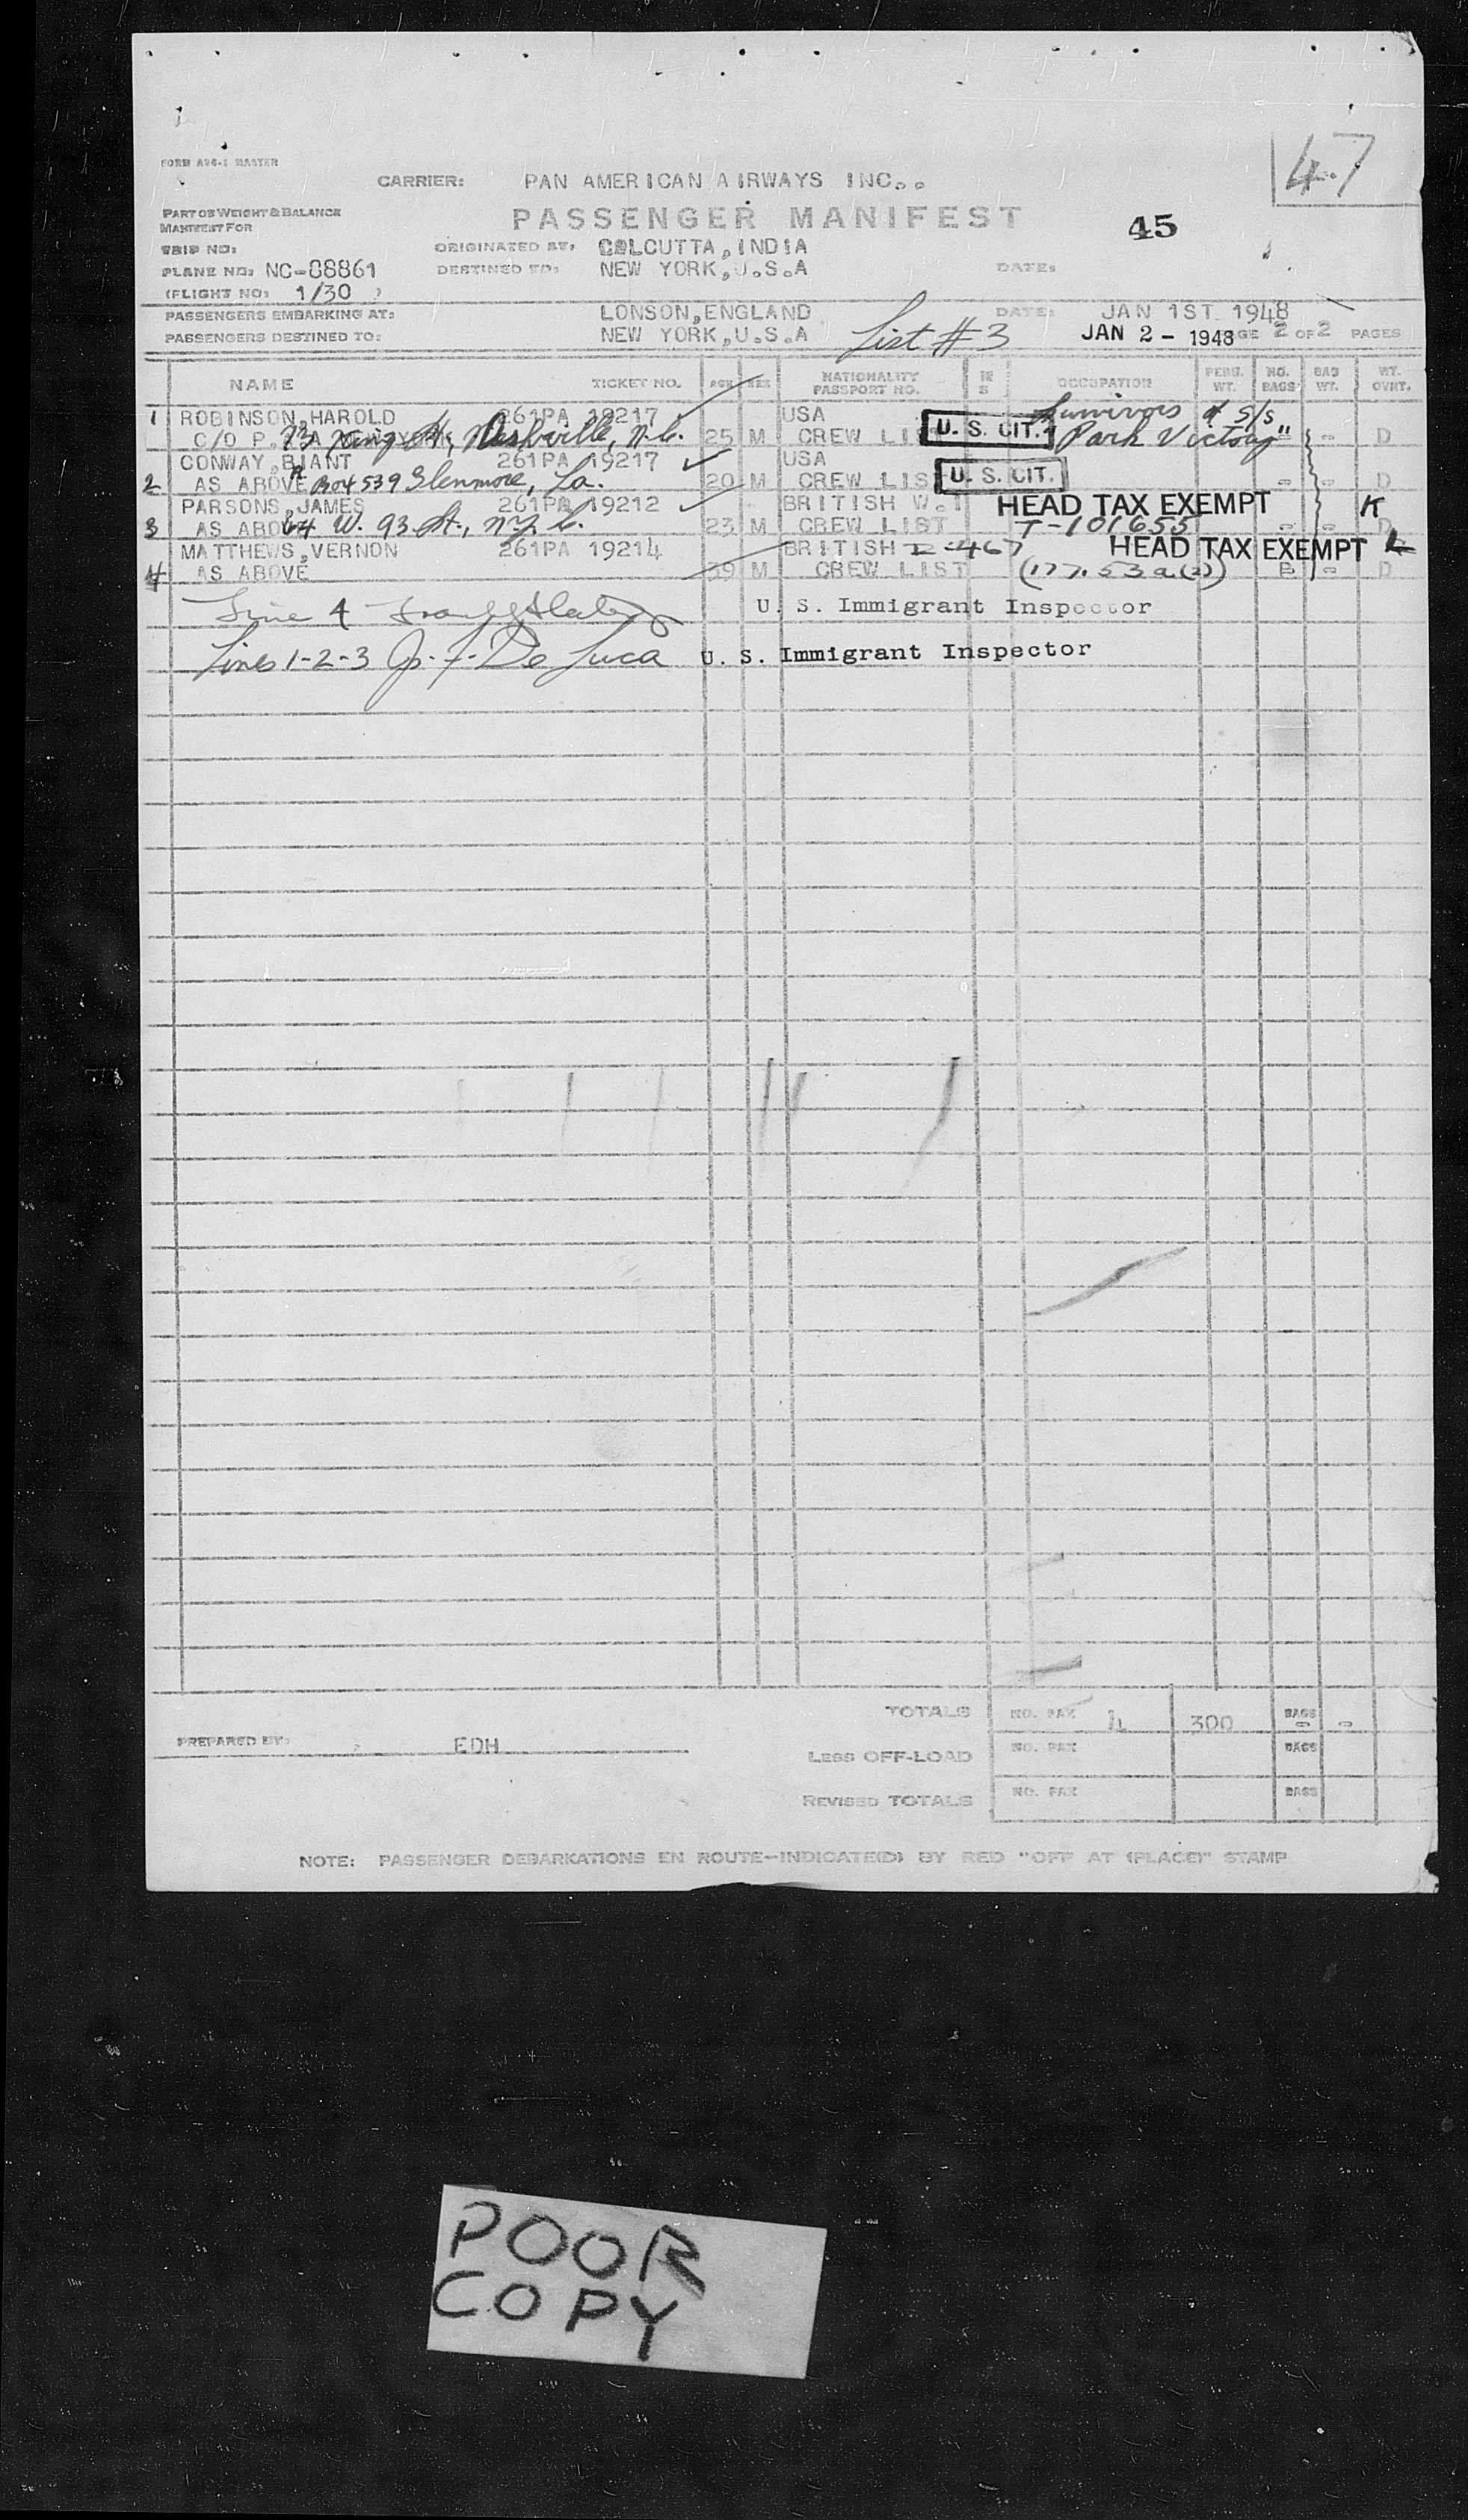 47
FORM A26-1 MASTER
CARRIER: PAN AMERICAN AIRWAYS INC..
PART OF WEIGHT & BALANCE
MANIFEST FOR
PASSENGER MANIFEST
45
TRIP NO:
ORIGINATED AT: CALCUTTA, INDIA
PLANE NO: NC-88861
DESTINED TO: NEW YORK, U.S.A
DATE:
(FLIGHT NO: 1/30 )
PASSENGERS EMBARKING AT: LONSON, ENGLAND DATE: JAN 1ST 1948
PASSENGERS DESTINED TO: NEW YORK, U.S.A List #3 JAN 2 - 1948 PAGE 2 OF 2 PAGES
NAME TICKET NO. AGE SEX NATIONALITY PASSPORT NO. OCCUPATION PERS. WT. NO. BAGS BAG WT. WT. OVRT.
1 ROBINSON, HAROLD 261PA 19217 USA Survivors of S/S
C/O P. 73 St., N.C. 25 M CREW LIS U. S. CIT. "Park Victory" - - D
CONWAY, BIANT 261PA 19217 USA
2 AS ABOVE Box 539 Glenmore, La. 20 M CREW LIS U. S. CIT. - - D
PARSONS, JAMES 261PA 19212 BRITISH W.I HEAD TAX EXEMPT K
3 AS ABO 64 W. 93 St., N.Y.C. 23 M CREW LIST T-101655 - - D
MATTHEWS, VERNON 261PA 19214 BRITISH I-467 HEAD TAX EXEMPT
4 AS ABOVE 39 M CREW LIST (177.53a(2)) - D
Line 4 U. S. Immigrant Inspector
Lines 1-2-3 Jo. F. De Luca U. S. Immigrant Inspector
TOTALS NO. PAX 4 300 BAGS - -
PREPARED BY: EDH
LESS OFF-LOAD NO. PAX BAGS
REVISED TOTALS NO. PAX BAGS
NOTE: PASSENGER DEBARKATIONS EN ROUTE-INDICATE(D) BY RED "OFF AT (PLACE)" STAMP
POOR
COPY